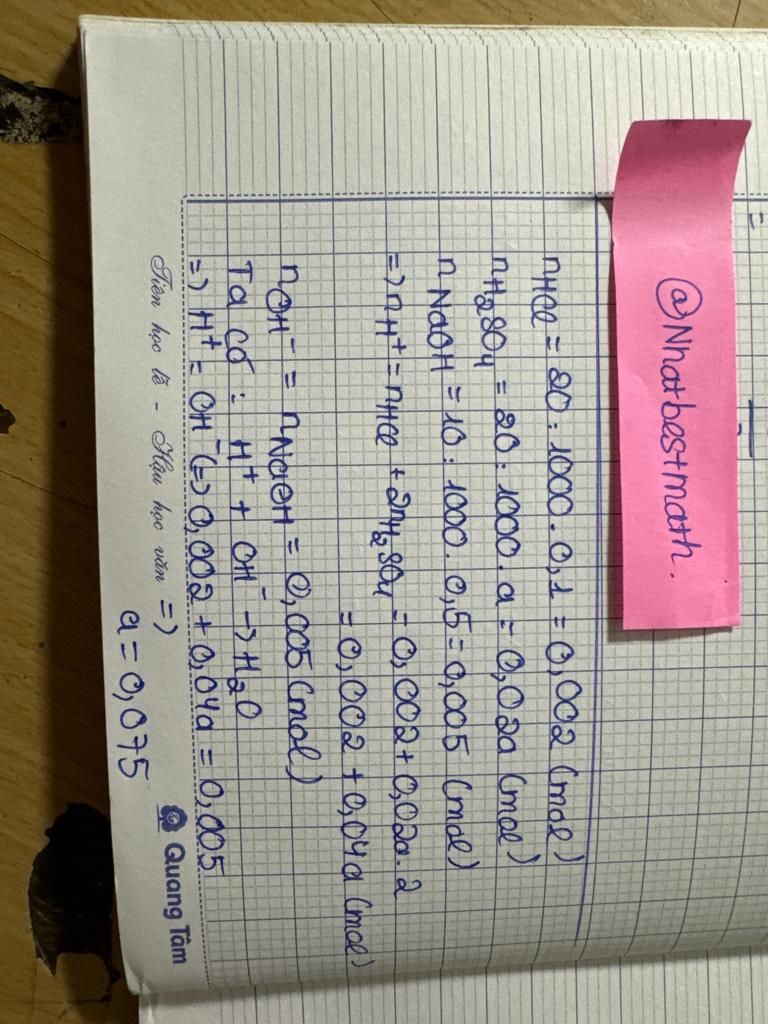 @Nhatbestmath.
nHCl = 20 : 1000 . 0,1 = 0,002 (mol)
nH₂SO₄ = 20 : 1000 . a = 0,02a (mol)
nNaOH = 10 : 1000 . 0,5 = 0,005 (mol)
=) nH⁺ = nHCl + 2nH₂SO₄ = 0,002 + 0,02a . 2
= 0,002 + 0,04a (mol)
nOH⁻ = nNaOH = 0,005 (mol)
Ta có : H⁺ + OH⁻ -> H₂O
=) H⁺ = OH⁻ (=) 0,002 + 0,04a = 0,005
Tiên học lễ - Hậu học văn =)
a = 0,075
Quang Tâm